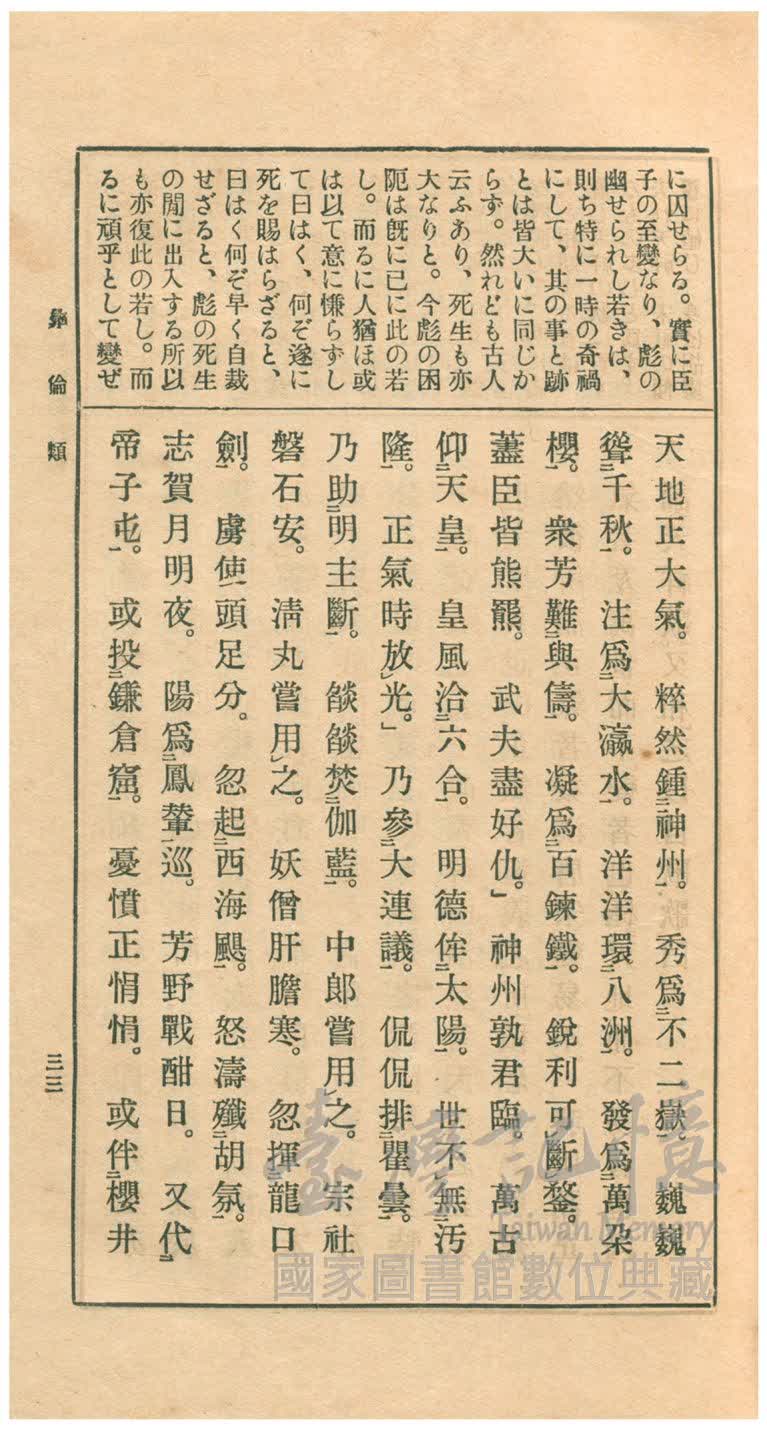 に囚せらる。實に臣
子の至變なり、彪の
幽せられし若きは、
則ち特に一時の奇禍
にして、其の事と跡
とは皆大いに同じか
らず。然れども古人
云ふあり、死生も亦
大なりと。今彪の困
阨は旣に已に此の若
し。而るに人猶ほ或
は以て意に慊らずし
て曰はく、何ぞ遂に
死を賜はらざると、
曰はく何ぞ早く自裁
せざると、彪の死生
の間に出入する所以
も亦復此の若し。而
るに頑乎として變ぜ
天地正大氣。粹然鍾二神州一。秀爲二不二嶽一。巍巍
聳二千秋一。注爲二大瀛水一。洋洋環二八洲一。發爲二萬朶
櫻一。衆芳難二與儔一。凝爲二百鍊鐵一。銳利可レ斷レ鍪。
藎臣皆熊羆。武夫盡好仇。」神州孰君臨。萬古
仰二天皇一。皇風洽二六合一。明德侔二太陽一。世不二無汚
隆一。正氣時放レ光。」乃參二大連議一。侃侃排二瞿曇一。
乃助二明主斷一。燄燄焚二伽藍一。中郎嘗用レ之。宗社
磐石安。淸丸嘗用レ之。妖僧肝膽寒。忽揮二龍口
劍一。虜使頭足分。忽起二西海颶一。怒濤殲二胡氛一。
志賀月明夜。陽爲二鳳輦巡一。芳野戰酣日。又代二
帝子屯一。或投二鎌倉窟一。憂憤正悁悁。或伴二櫻井
彝倫類
三三
臺灣記憶
Taiwan Memory
國家圖書館數位典藏